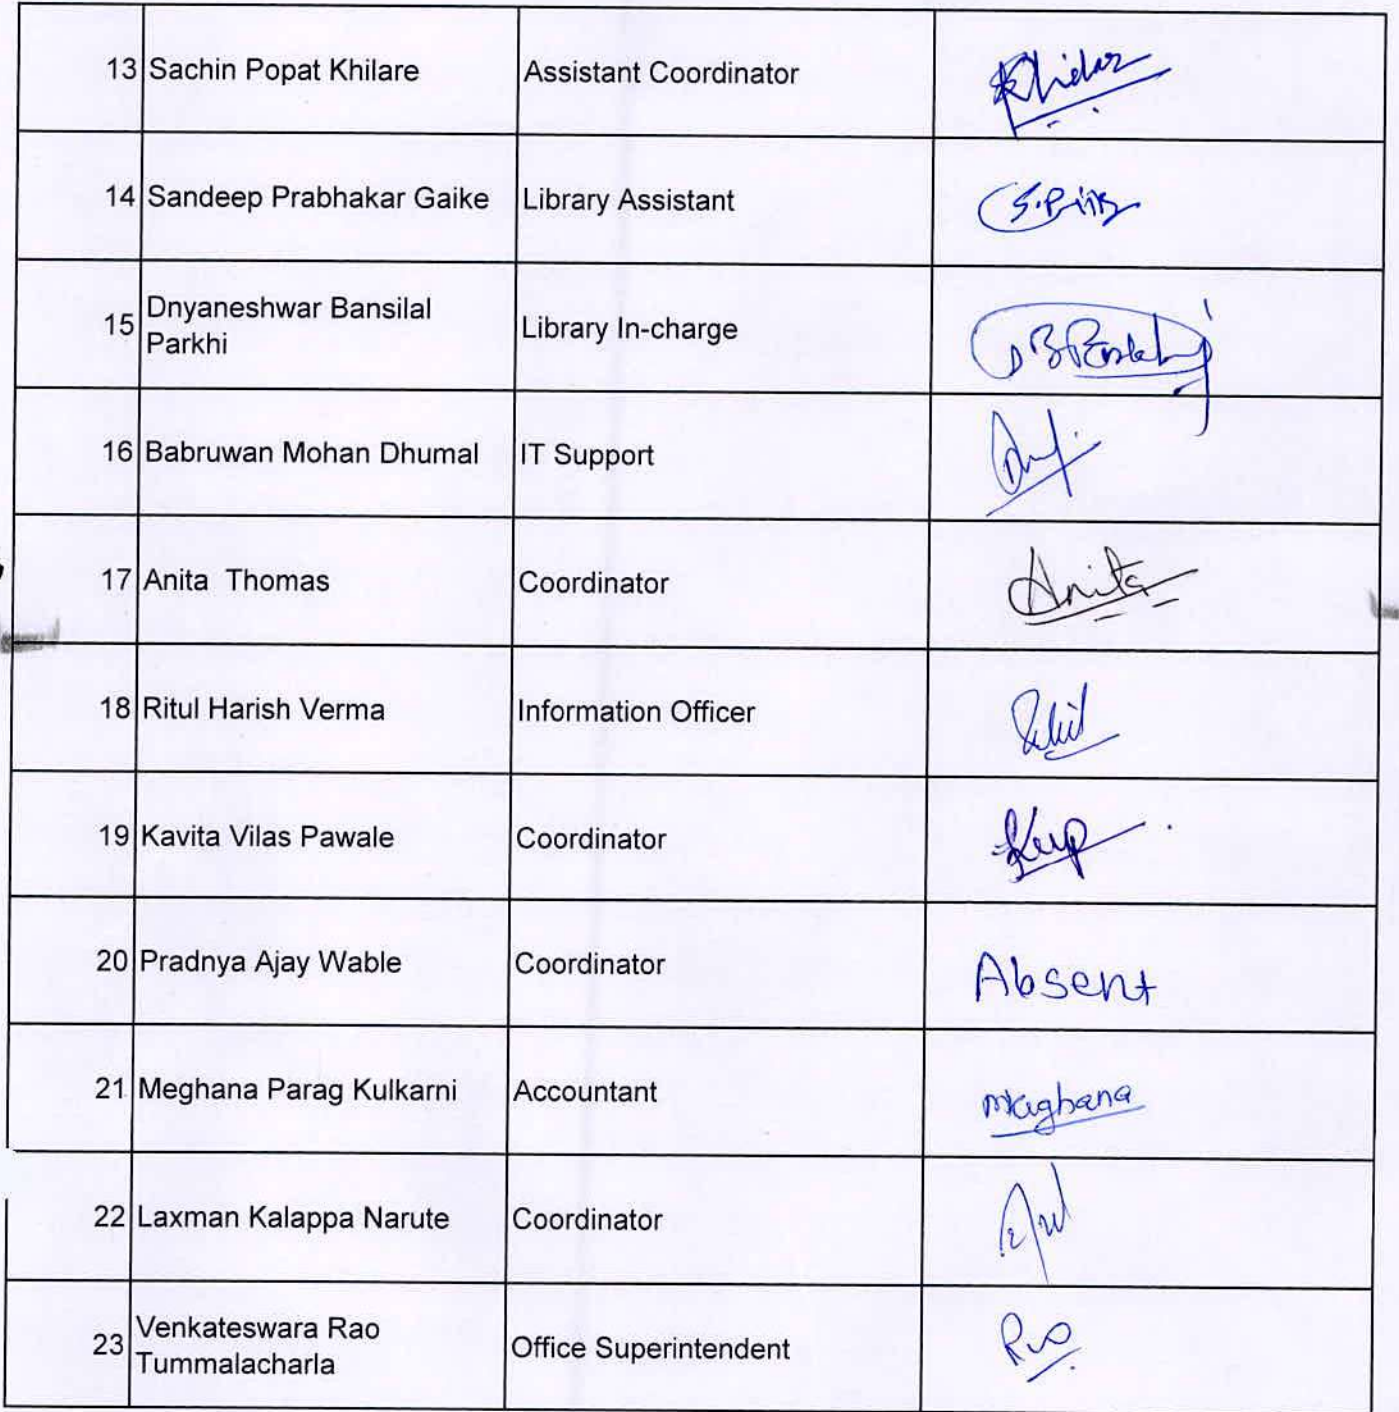 13 Sachin Popat Khilare Assistant Coordinator
14 Sandeep Prabhakar Gaike Library Assistant
Dnyaneshwar Bansilal
15 Parkhi Library In-charge
16 Babruwan Mohan Dhumal IT Support
17 Anita Thomas Coordinator Anita
18 Ritul Harish Verma Information Officer
19 Kavita Vilas Pawale Coordinator
20 Pradnya Ajay Wable Coordinator Absent
21 Meghana Parag Kulkarni Accountant Meghana
22 Laxman Kalappa Narute Coordinator
Venkateswara Rao
23 Tummalacharla Office Superintendent Rao